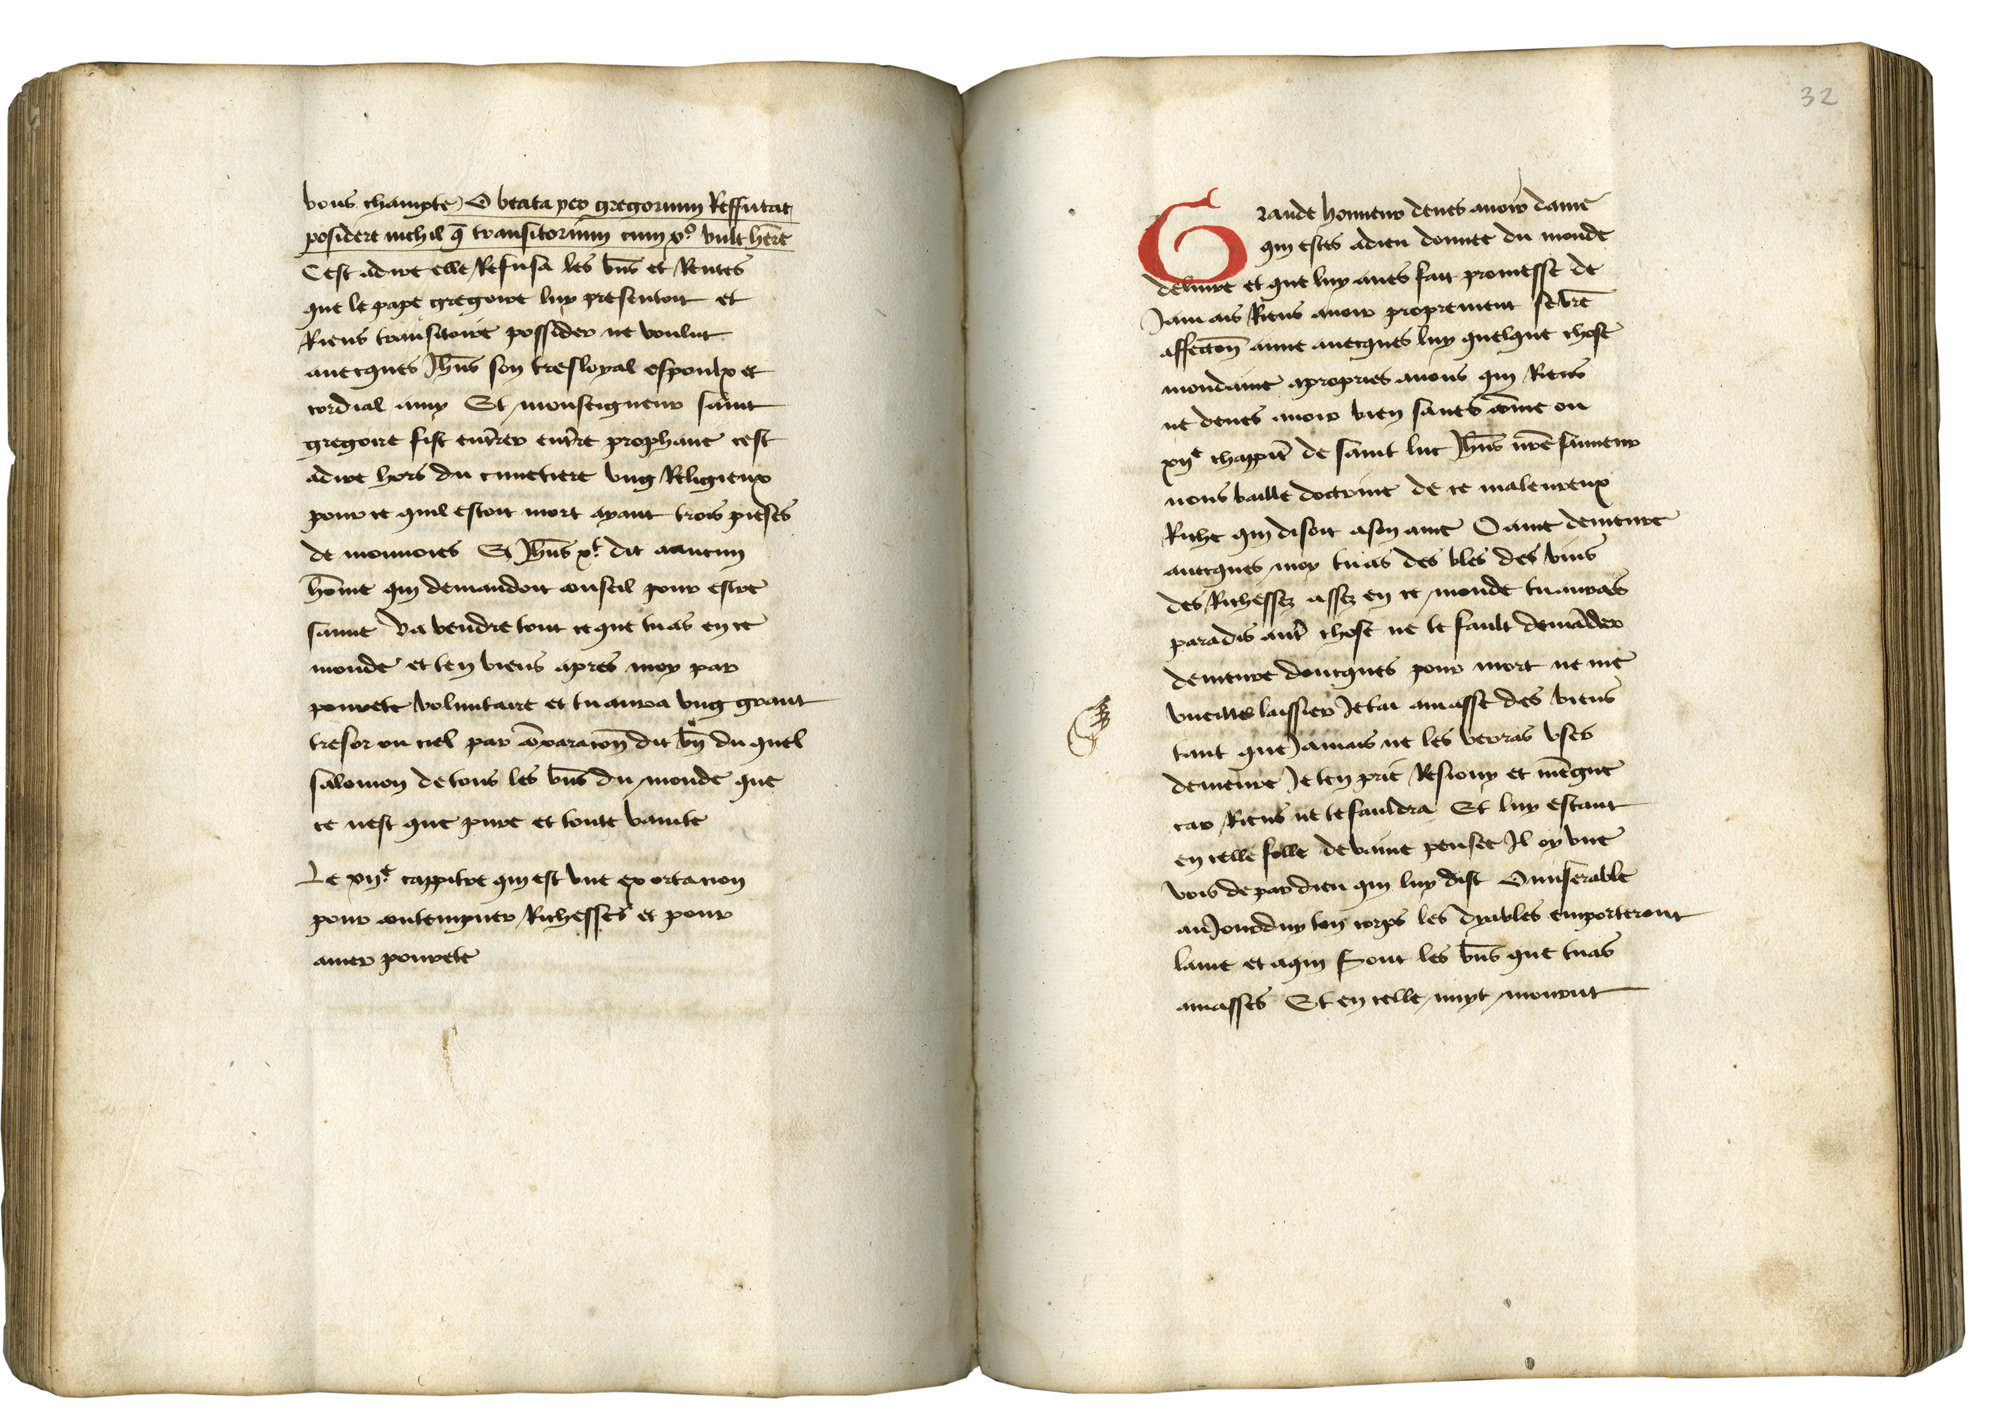 vous champte O beata pro gregorium Reffutat
posidere nichil q̄ transitorium cum xᵒ vult hēre
Cest adire elle Refusa les bn̄s et Rentes
que le pape gregoire luy presentoit et
Riens transitoire possider ne voulut
auecques Jhūs son tresloyal espoulx et
cordial amy Et monseigneur saint
gregoire fist enterrer entre prophane cest
adire hors du cimetiere vng Religieux
pour ce quil estoit mort ayant trois pieses
de monnoies Et Jhūs xt̄ dit aaucun
hōme qui demandoit conseil pour estre
sauue Va vendre tout ce que tuas en ce
monde et ten viens apres moy par
pourete voluntaire et tu aura vng grant
tresor ou ciel par cōparacion dit bn̄ du quel
salomon de tous les bn̄s du monde que
ce nest que pure et toute vanite
Le xijᵉ cappitre qui est vne exortacion
pour contempner Richesses et pour
amer pourete
32
Grande honneur deues auoir dame
qui estes adieu donnee du monde
deliure et que luy aues fait promesse de
Jamais Riens auoir proprement se vrē
affectoin aime auecques luy quelque chose
mondaine apropries auous qui Riens
ne deues auoir bien saues cōme ou
xijᵉ chappitre de saint luc Jhūs nrē saueur
nous baille doctrine de ce maleureux
Riche qui disoit ason ame O ame demeure
auecques moy tuas des bles des vins
des Richessez assez en ce monde tuauras
paradis autre chose ne te fault demāder
demeure doncques pour mort ne me
vueilles laissier Je tai amasse des biens
tant que Jamais ne les verras vses
demeure Je ten prie Resiouy et mēgue
car Riens ne te fauldra Et luy estant
en celle folle de vaine pensee Il oy vne
vois depar dieu qui luy dist O miserable
auJourduy ton corps les dyables emporteront
lame et aqui sont les bn̄s que tuas
amasses Et en celle nuyt mourut